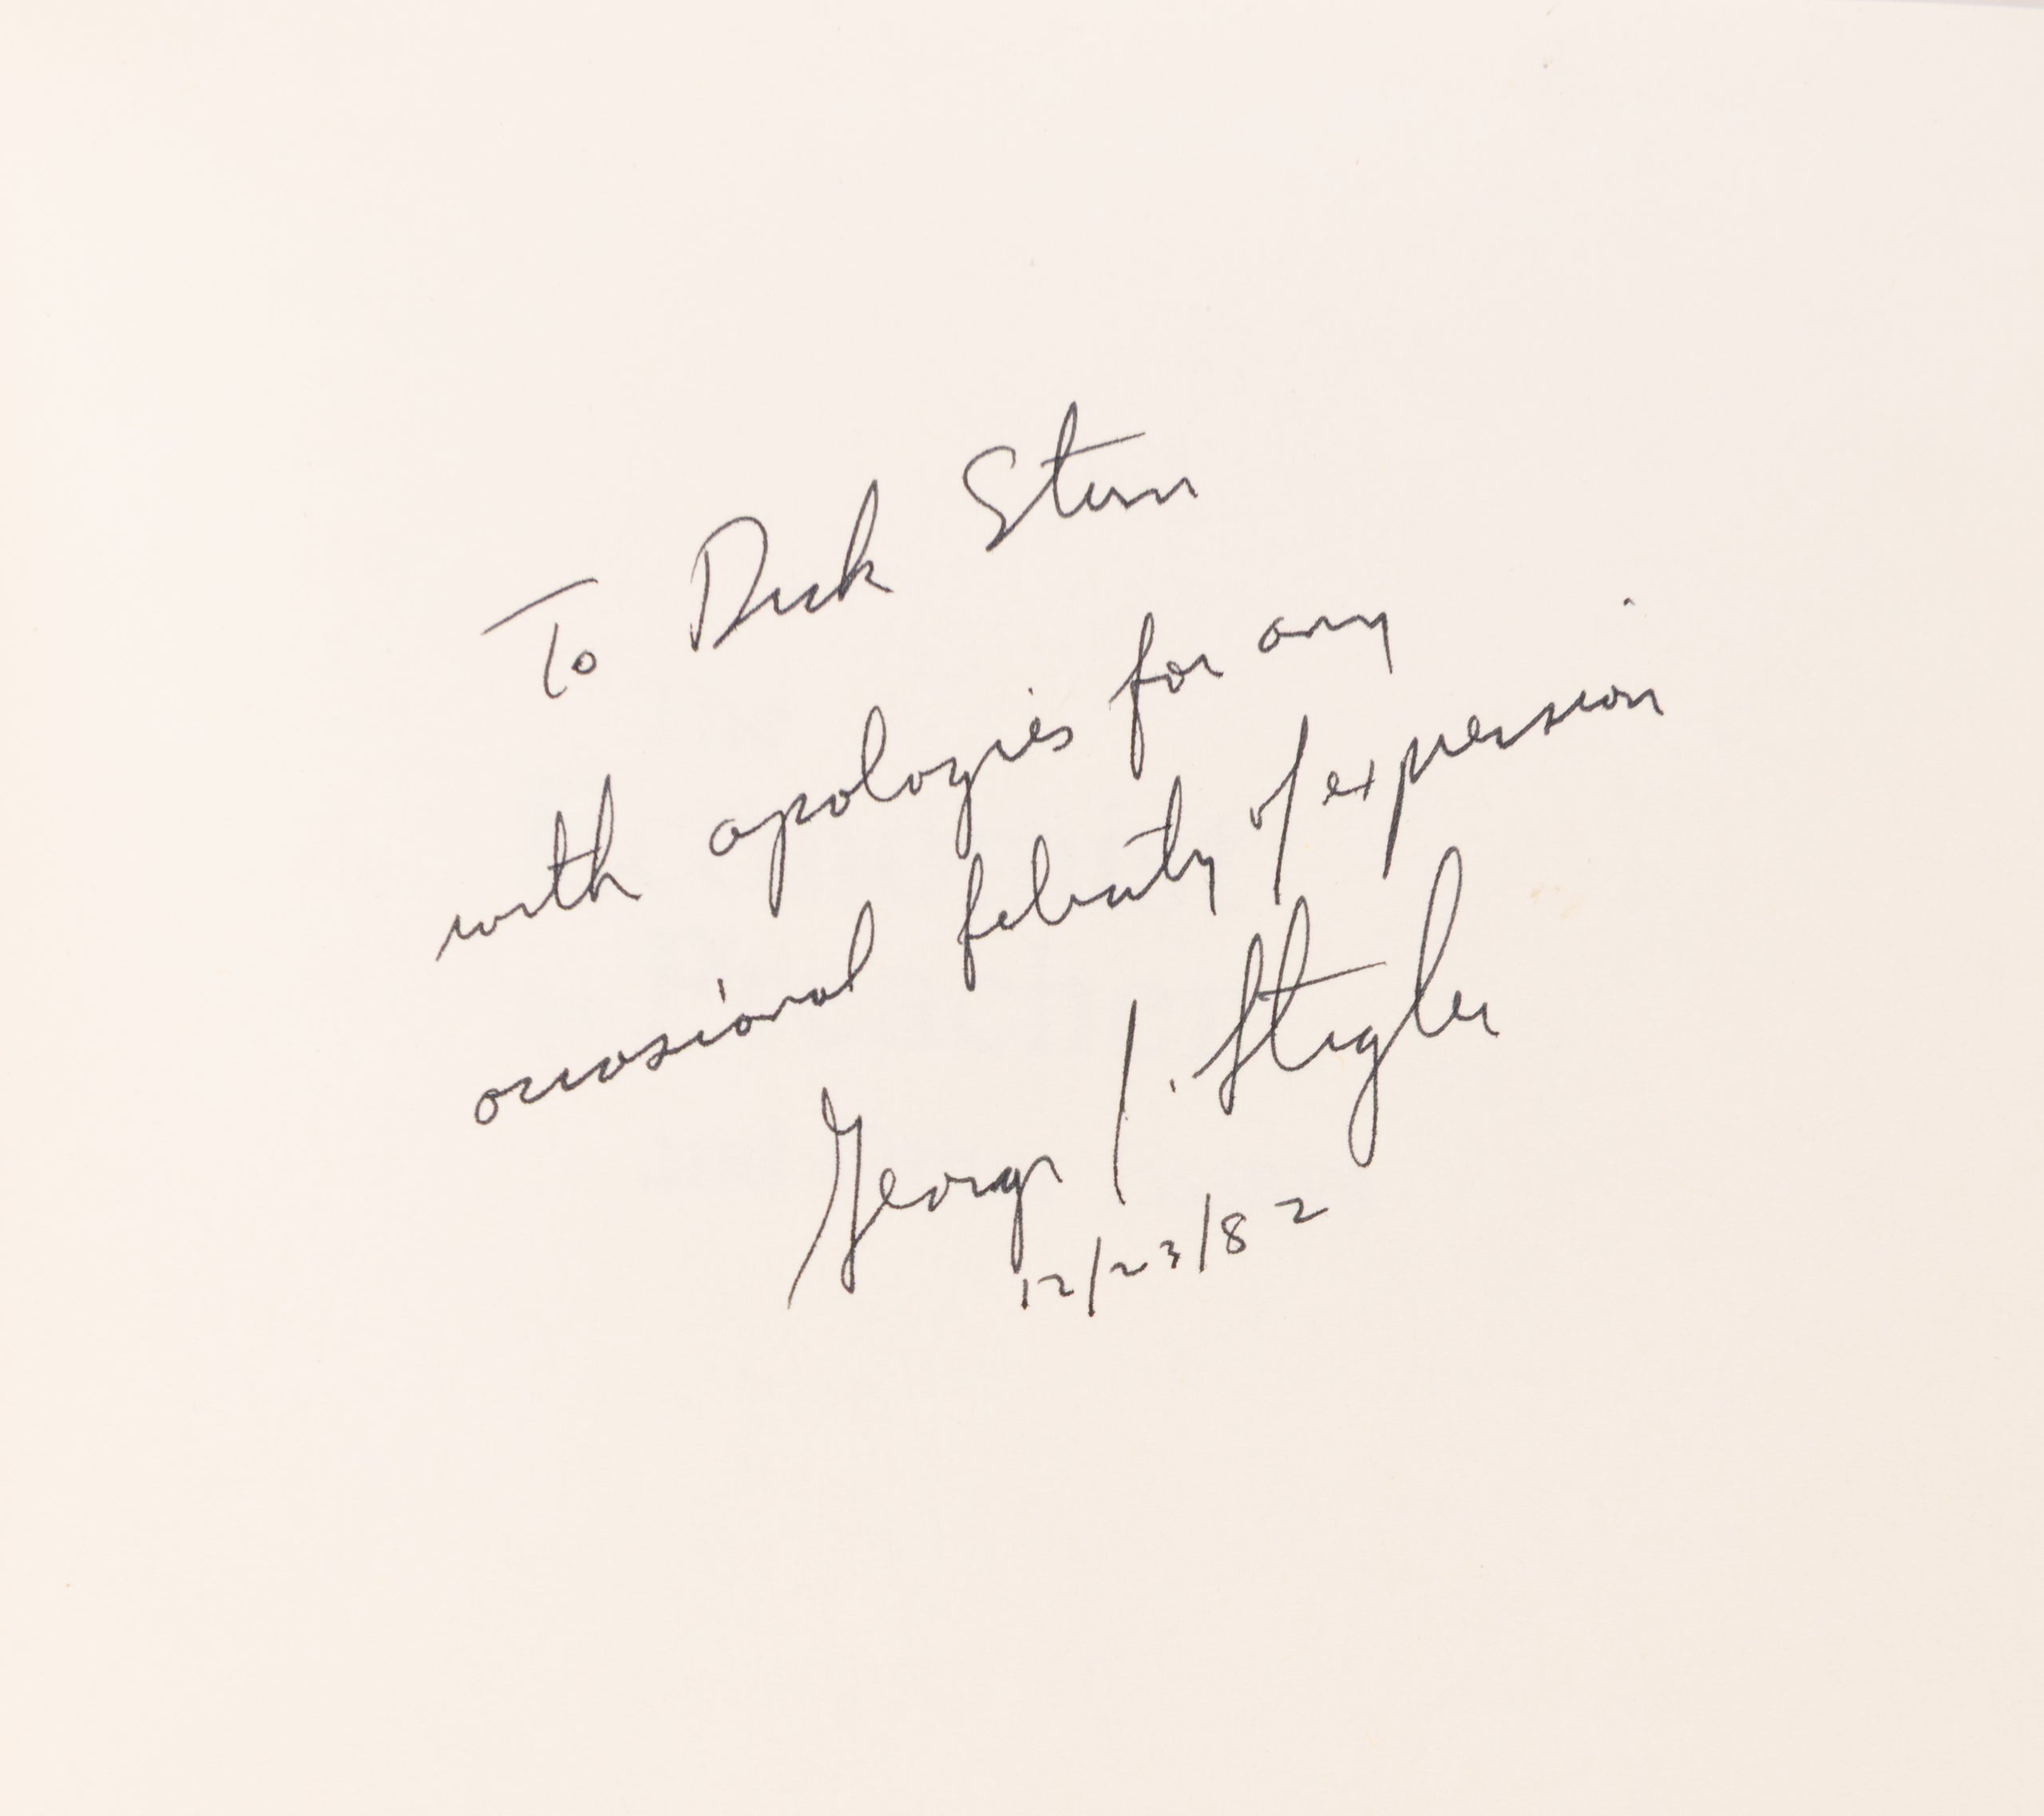 To Dick Stern
with apologies for any
occasional felicity of expression
George J. Stigler
12/23/82